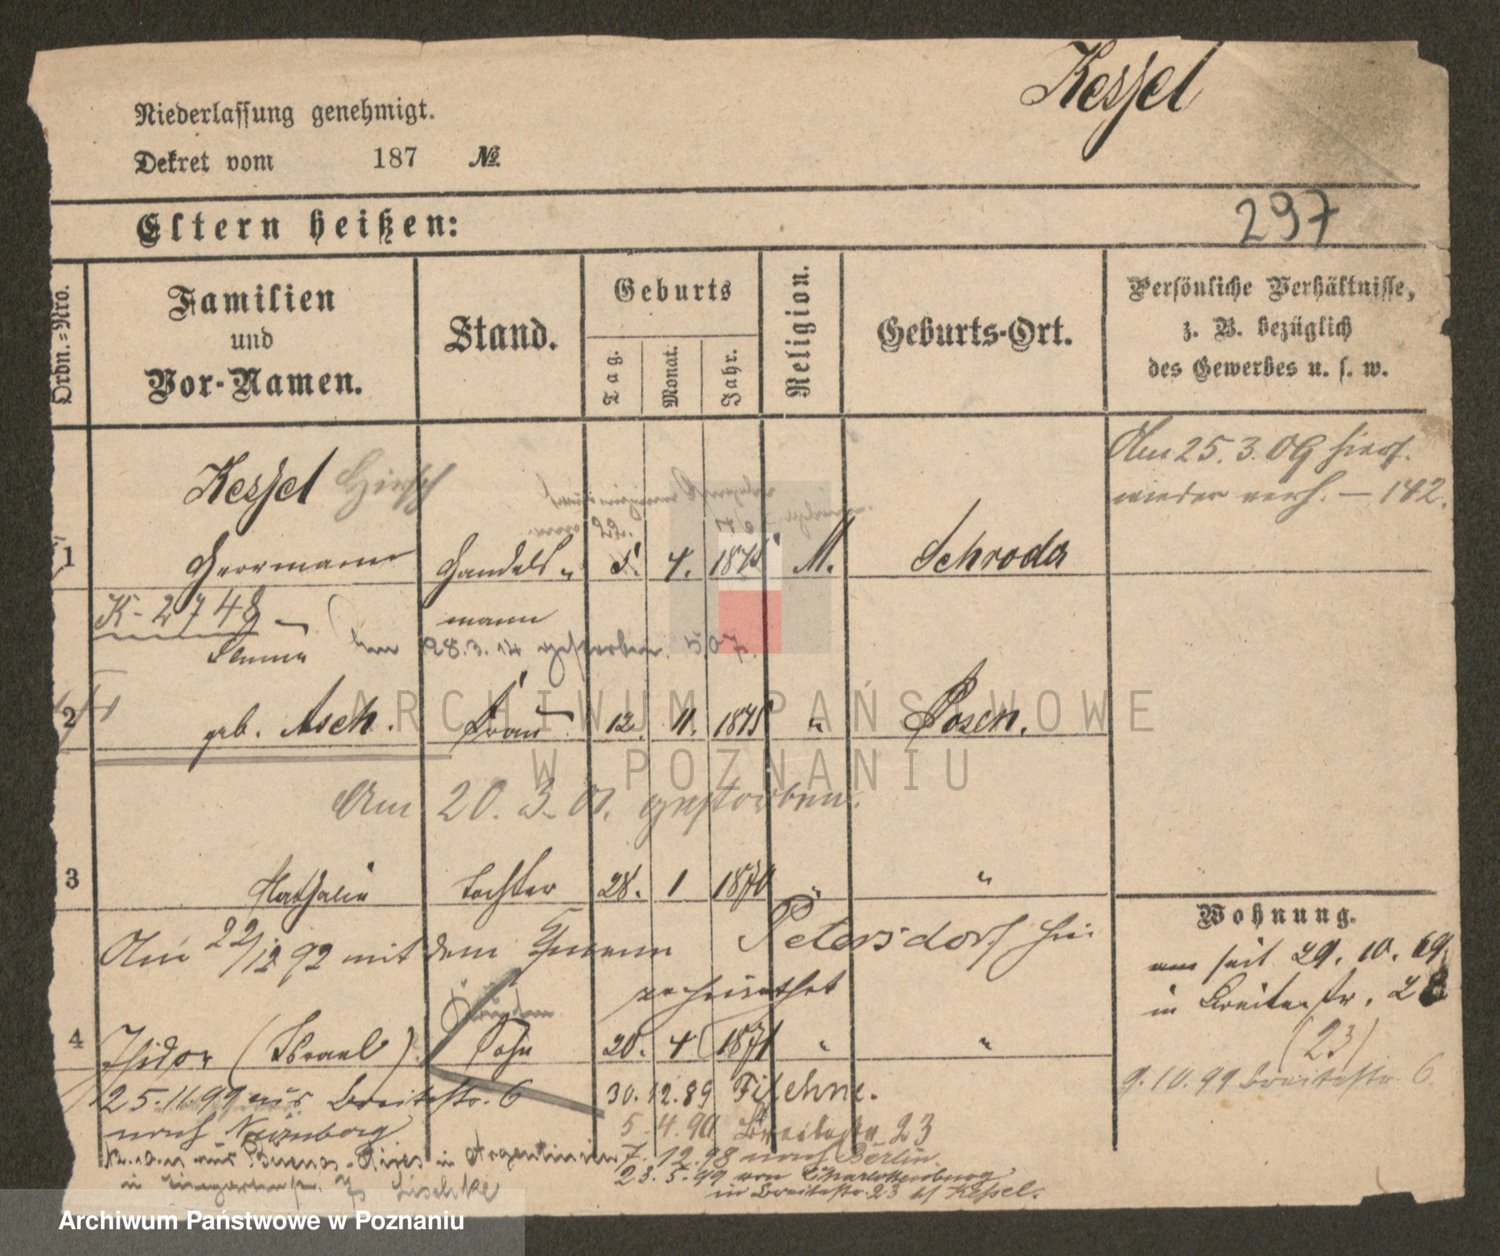 Kessel
Niederlassung genehmigt.
Dekret vom 187 №
297
Eltern heißen:
Ordn.=Nro.
Familien
und
Vor-Namen.
Stand.
Geburts
Tag.
Monat.
Jahr.
Religion.
Geburts-Ort.
Persönliche Verhältnisse,
z. B. bezüglich
des Gewerbes u. s. w.
Am 25.3.09 hier
wieder verh. — 142.
Kessel Hirsch
1 Herrmann Handels- 5. 4. 1845 M. Schroda
K-2748 mann
Am 28.3.14 gestorben 507.
2 geb. Asch. Frau 12. 11. 1845 " Posen.
ARCHIWUM PAŃSTWOWE
W POZNANIU
Am 20. 3. 01. gestorben.
3 Nathalie Tochter 28. 1 1870 " "
Wohnung.
Am 22/12 92 mit dem Petersdorf hier
verheirathet
seit 29. 10. 69
in Breitestr. 28
(23)
4 Isidor (Israel) Sohn 20. 4 1871 " "
9.10.99 Breitestr. 6
25.11.99 aus Breitestr. 6 30.12.89 Filehne.
nach Nürnberg 5.4.90 Breitestr. 23
aus Buenos-Aires in Argentinien 7.12.98 nach Berlin.
23.5.99 von Charlottenburg
in Breitestr. 23 Kessel.
Archiwum Państwowe w Poznaniu